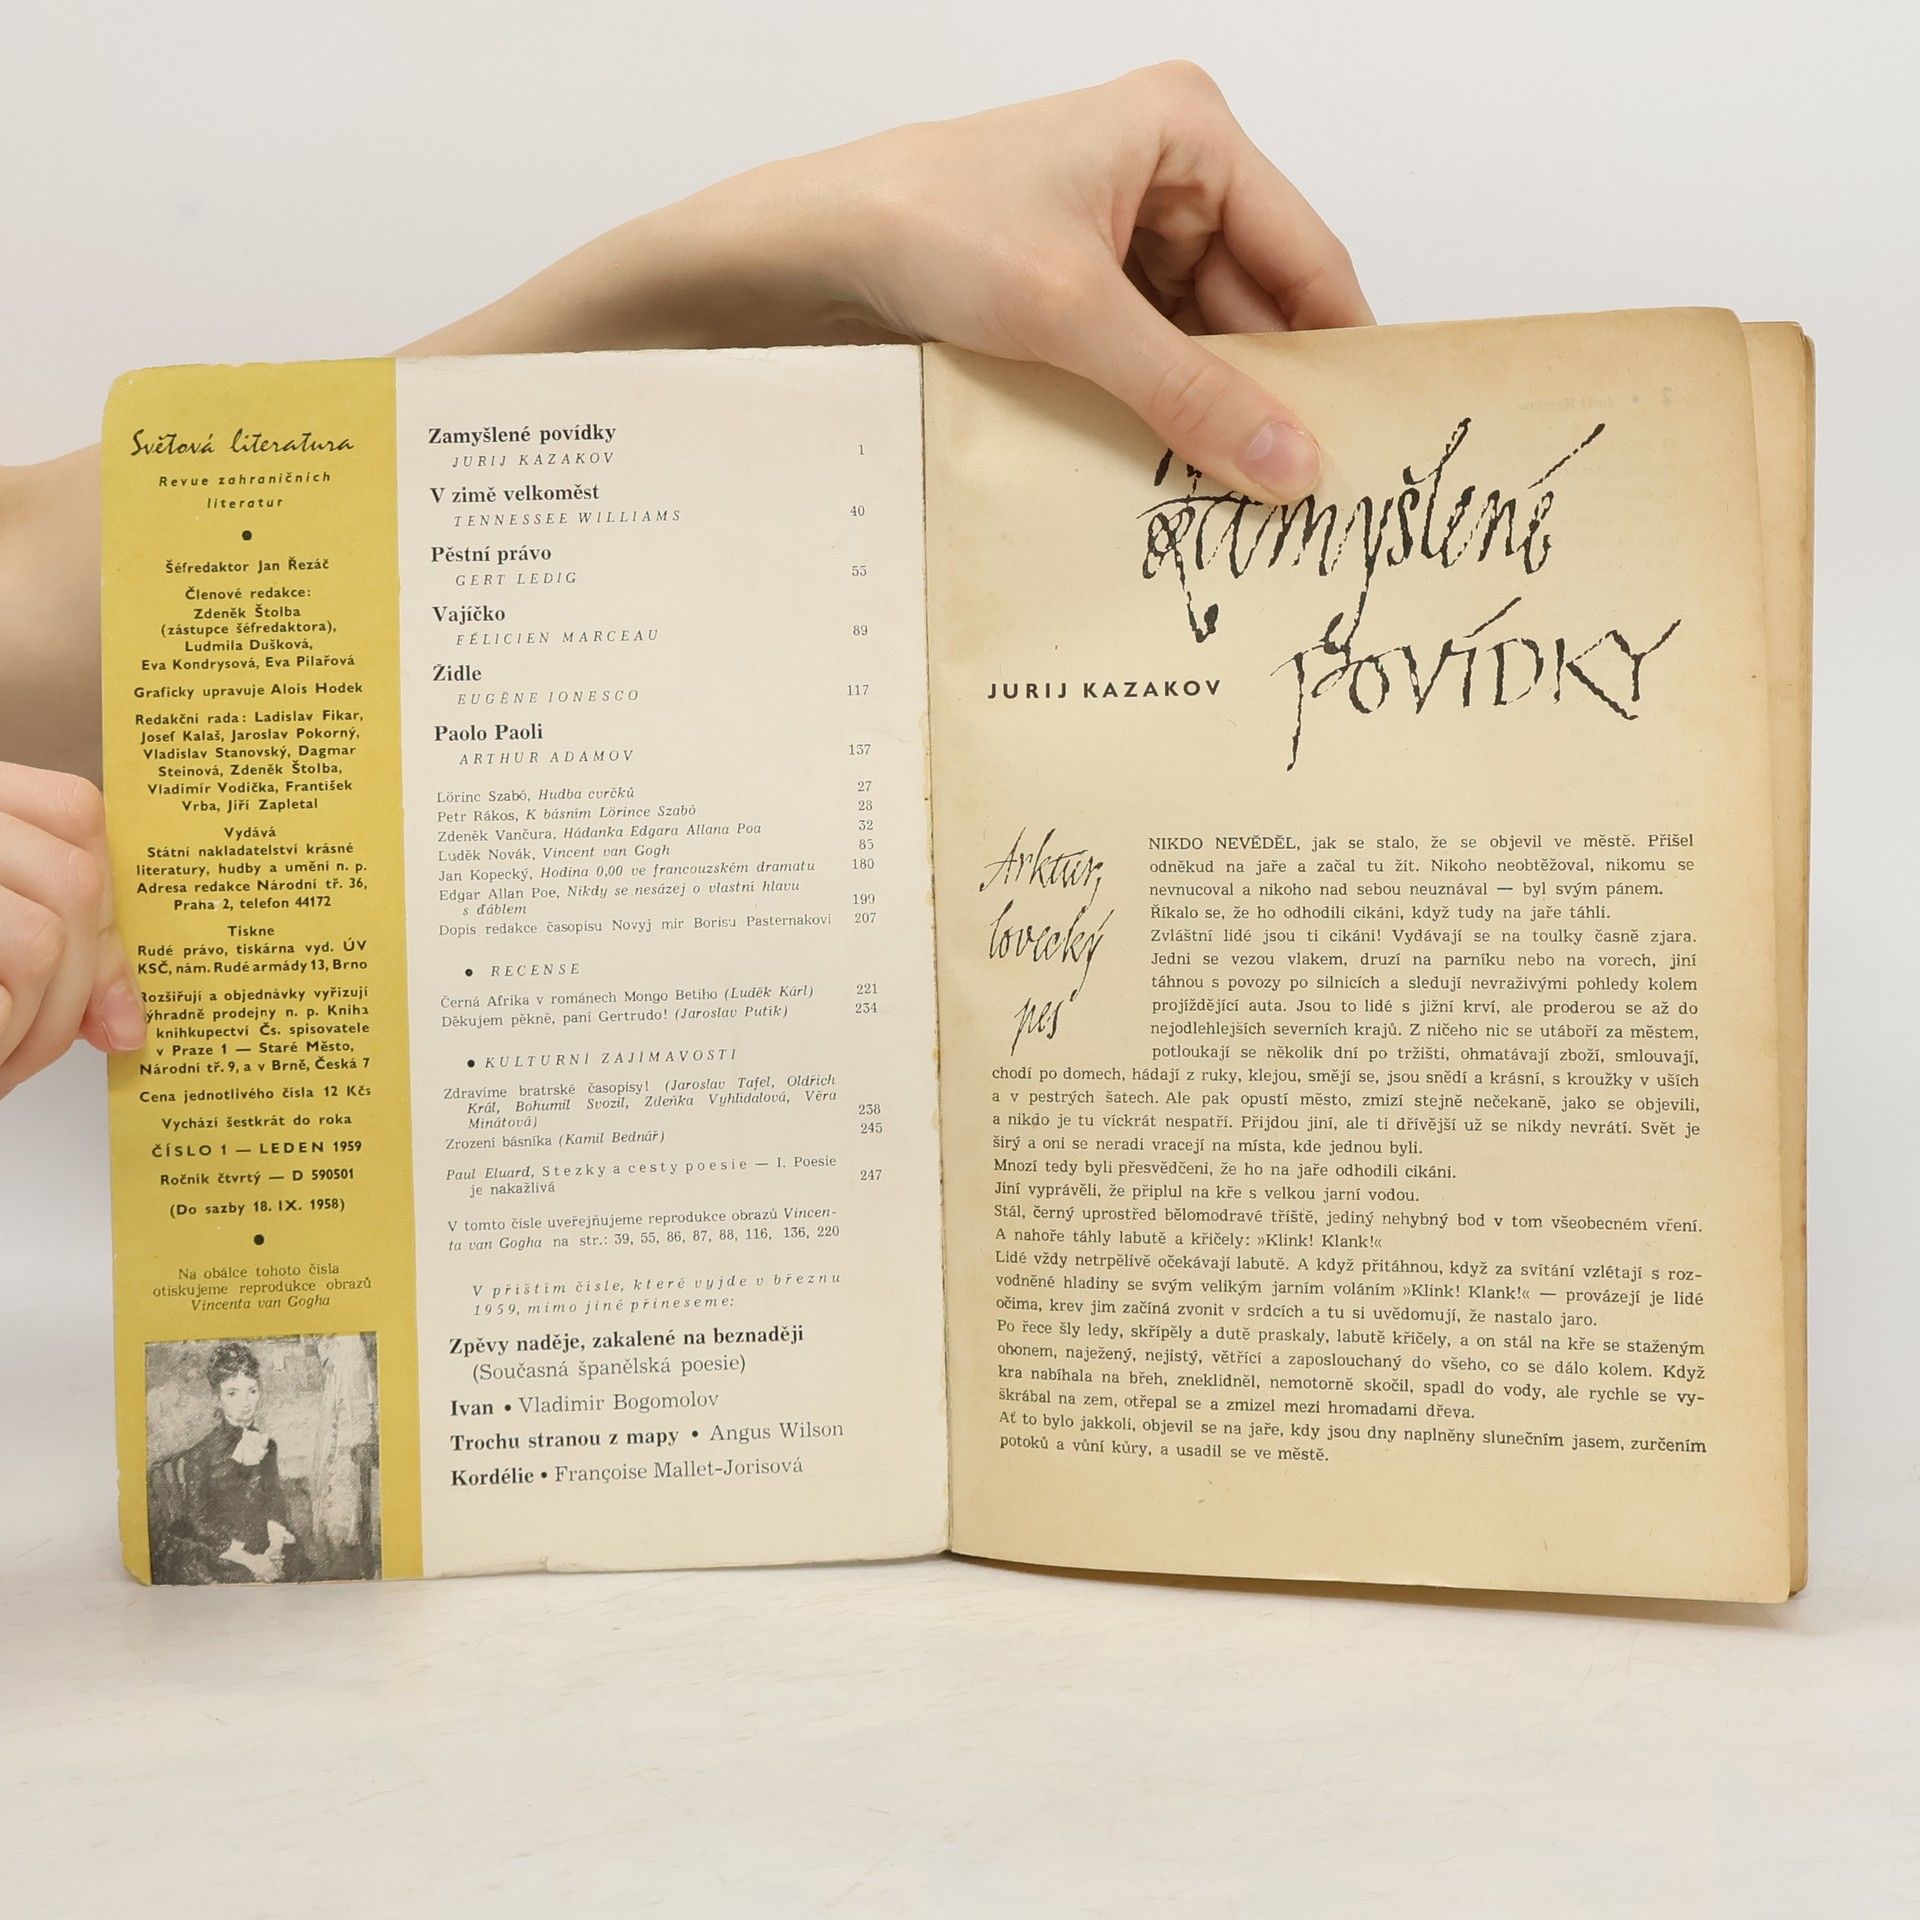 Světová literatura
Revue zahraničních
literatur
●
Šéfredaktor Jan Řezáč
Členové redakce:
Zdeněk Štolba
(zástupce šéfredaktora),
Ludmila Dušková,
Eva Kondrysová, Eva Pilařová
Graficky upravuje Alois Hodek
Redakční rada: Ladislav Fikar,
Josef Kalaš, Jaroslav Pokorný,
Vladislav Stanovský, Dagmar
Steinová, Zdeněk Štolba,
Vladimír Vodička, František
Vrba, Jiří Zapletal
Vydává
Státní nakladatelství krásné
literatury, hudby a umění n. p.
Adresa redakce Národní tř. 36,
Praha 2, telefon 44172
Tiskne
Rudé právo, tiskárna vyd. ÚV
KSČ, nám. Rudé armády 13, Brno
Rozšiřují a objednávky vyřizují
výhradně prodejny n. p. Kniha
knihkupectví Čs. spisovatele
v Praze 1 — Staré Město,
Národní tř. 9, a v Brně, Česká 7
Cena jednotlivého čísla 12 Kčs
Vychází šestkrát do roka
ČÍSLO 1 — LEDEN 1959
Ročník čtvrtý — D 590501
(Do sazby 18. IX. 1958)
●
Na obálce tohoto čísla
otiskujeme reprodukce obrazů
Vincenta van Gogha
Zamyšlené povídky
JURIJ KAZAKOV 1
V zimě velkoměst
TENNESSEE WILLIAMS 40
Pěstní právo
GERT LEDIG 55
Vajíčko
FÉLICIEN MARCEAU 89
Židle
EUGÈNE IONESCO 117
Paolo Paoli
ARTHUR ADAMOV 137
Lörinc Szabó, Hudba cvrčků 27
Petr Rákos, K básním Lörince Szabó 28
Zdeněk Vančura, Hádanka Edgara Allana Poa 32
Luděk Novák, Vincent van Gogh 85
Jan Kopecký, Hodina 0,00 ve francouzském dramatu 180
Edgar Allan Poe, Nikdy se nesázej o vlastní hlavu
s ďáblem 199
Dopis redakce časopisu Novyj mir Borisu Pasternakovi 207
● RECENSE
Černá Afrika v románech Mongo Betiho (Luděk Kárl) 221
Děkujem pěkně, paní Gertrudo! (Jaroslav Putík) 234
● KULTURNÍ ZAJÍMAVOSTI
Zdravíme bratrské časopisy! (Jaroslav Tafel, Oldřich
Král, Bohumil Svozil, Zdeňka Vyhlídalová, Věra
Minátová) 238
Zrození básníka (Kamil Bednář) 245
Paul Eluard, Stezky a cesty poesie — I. Poesie
je nakažlivá 247
V tomto čísle uveřejňujeme reprodukce obrazů Vincen-
ta van Gogha na str.: 39, 55, 86, 87, 88, 116, 136, 220
V příštím čísle, které vyjde v březnu
1959, mimo jiné přineseme:
Zpěvy naděje, zakalené na beznaději
(Současná španělská poesie)
Ivan ● Vladimir Bogomolov
Trochu stranou z mapy ● Angus Wilson
Kordélie ● Françoise Mallet-Jorisová
Zamyšlené
POVÍDKY
JURIJ KAZAKOV
Arktur,
lovecký
pes
NIKDO NEVĚDĚL, jak se stalo, že se objevil ve městě. Přišel
odněkud na jaře a začal tu žít. Nikoho neobtěžoval, nikomu se
nevnucoval a nikoho nad sebou neuznával — byl svým pánem.
Říkalo se, že ho odhodili cikáni, když tudy na jaře táhli.
Zvláštní lidé jsou ti cikáni! Vydávají se na toulky časně zjara.
Jedni se vezou vlakem, druzí na parníku nebo na vorech, jiní
táhnou s povozy po silnicích a sledují nevraživými pohledy kolem
projíždějící auta. Jsou to lidé s jižní krví, ale proderou se až do
nejodlehlejších severních krajů. Z ničeho nic se utáboří za městem,
potloukají se několik dní po tržišti, ohmatávají zboží, smlouvají,
chodí po domech, hádají z ruky, klejou, smějí se, jsou snědí a krásní, s kroužky v uších
a v pestrých šatech. Ale pak opustí město, zmizí stejně nečekaně, jako se objevili,
a nikdo je tu víckrát nespatří. Přijdou jiní, ale ti dřívější už se nikdy nevrátí. Svět je
širý a oni se neradi vracejí na místa, kde jednou byli.
Mnozí tedy byli přesvědčeni, že ho na jaře odhodili cikáni.
Jiní vyprávěli, že připlul na kře s velkou jarní vodou.
Stál, černý uprostřed bělomodravé tříště, jediný nehybný bod v tom všeobecném vření.
A nahoře táhly labutě a křičely: »Klink! Klank!«
Lidé vždy netrpělivě očekávají labutě. A když přitáhnou, když za svítání vzlétají s roz-
vodněné hladiny se svým velikým jarním voláním »Klink! Klank!« — provázejí je lidé
očima, krev jim začíná zvonit v srdcích a tu si uvědomují, že nastalo jaro.
Po řece šly ledy, skřípěly a dutě praskaly, labutě křičely, a on stál na kře se staženým
ohonem, naježený, nejistý, větřící a zaposlouchaný do všeho, co se dálo kolem. Když
kra nabíhala na břeh, zneklidněl, nemotorně skočil, spadl do vody, ale rychle se vy-
škrábal na zem, otřepal se a zmizel mezi hromadami dřeva.
Ať to bylo jakkoli, objevil se na jaře, kdy jsou dny naplněny slunečním jasem, zurčením
potoků a vůní kůry, a usadil se ve městě.